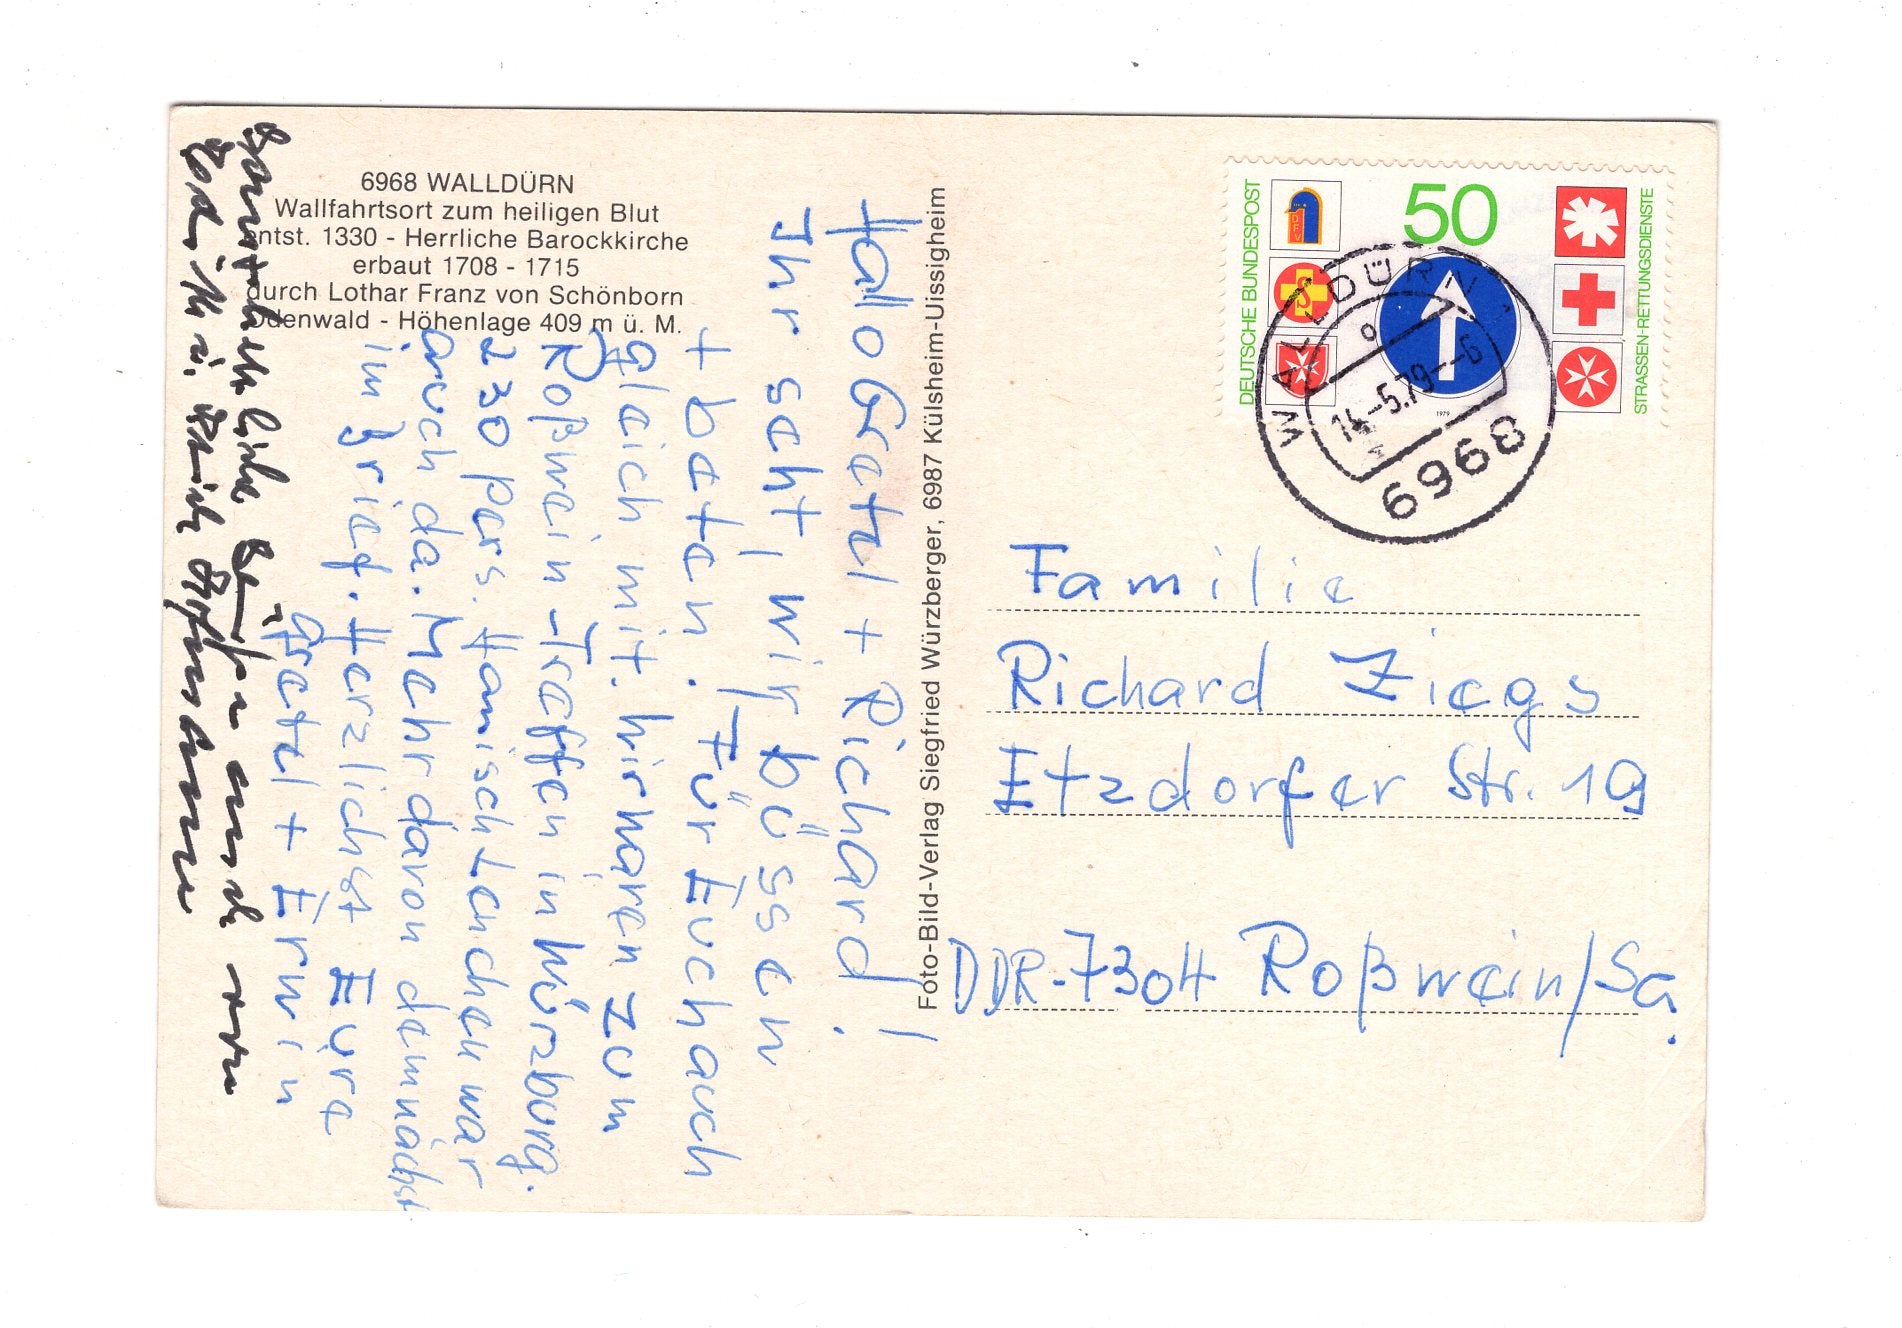 6968 WALLDÜRN
Wallfahrtsort zum heiligen Blut
entst. 1330 - Herrliche Barockkirche
erbaut 1708 - 1715
durch Lothar Franz von Schönborn
Odenwald - Höhenlage 409 m ü. M.
Hallo Gretel + Richard!
Ihr seht, wir büssen
+ beten. Für Euch auch
gleich mit. Wir waren zum
Roßwein-Treffen in Würzburg.
230 Pers. Hanisch Lenchen war
auch da. Mehr davon demnächst
im Brief. Herzlichst Eure
Gretel + Erwin
Grüße auch von
Foto-Bild-Verlag Siegfried Würzberger, 6987 Külsheim-Uissigheim
DEUTSCHE BUNDESPOST
50
STRASSEN-RETTUNGSDIENSTE
DFV
S
1979
WALLDÜRN 1
14.-5.79--6
6968
Familie
Richard Ziegs
Etzdorfer Str. 19
DDR-7304 Roßwein/Sa.